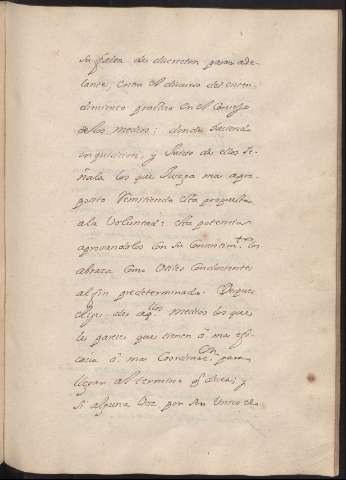 su falta de discrecion para ade-
lante, entra el discurso del enten-
dimiento practico en el Consejo
de los medios; donde haciendo
inquisicion, y Juicio de ellos se-
ñala los que Juzga mas apro-
posito remitiendo esta propuesta
a la Voluntad: esta potencia
aprovandolos con su Consentim.to los
abraza como Utiles Conducentes
al fin predeterminado. Despues
elije de aq.llos medios los que
le parece que tienen ó mas efi-
cacia ó mas Coordinac.on para
llegar al termino q desea; y
si alguna Vez por ser Unico el